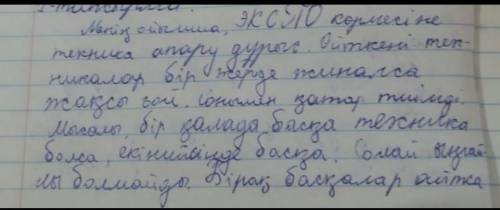 Менің ойымша, ЭКСПО көрмесіне
техника апару дұрыс. Өйткені тех-
никалар бір жерде жиналса
жақсы ғой. Сонымен қатар тиімді.
Мысалы, бір қалада басқа техника
болса, екіншісінде басқа. Солай ыңғай-
лы болмайды. Бірақ басқалар айтқа